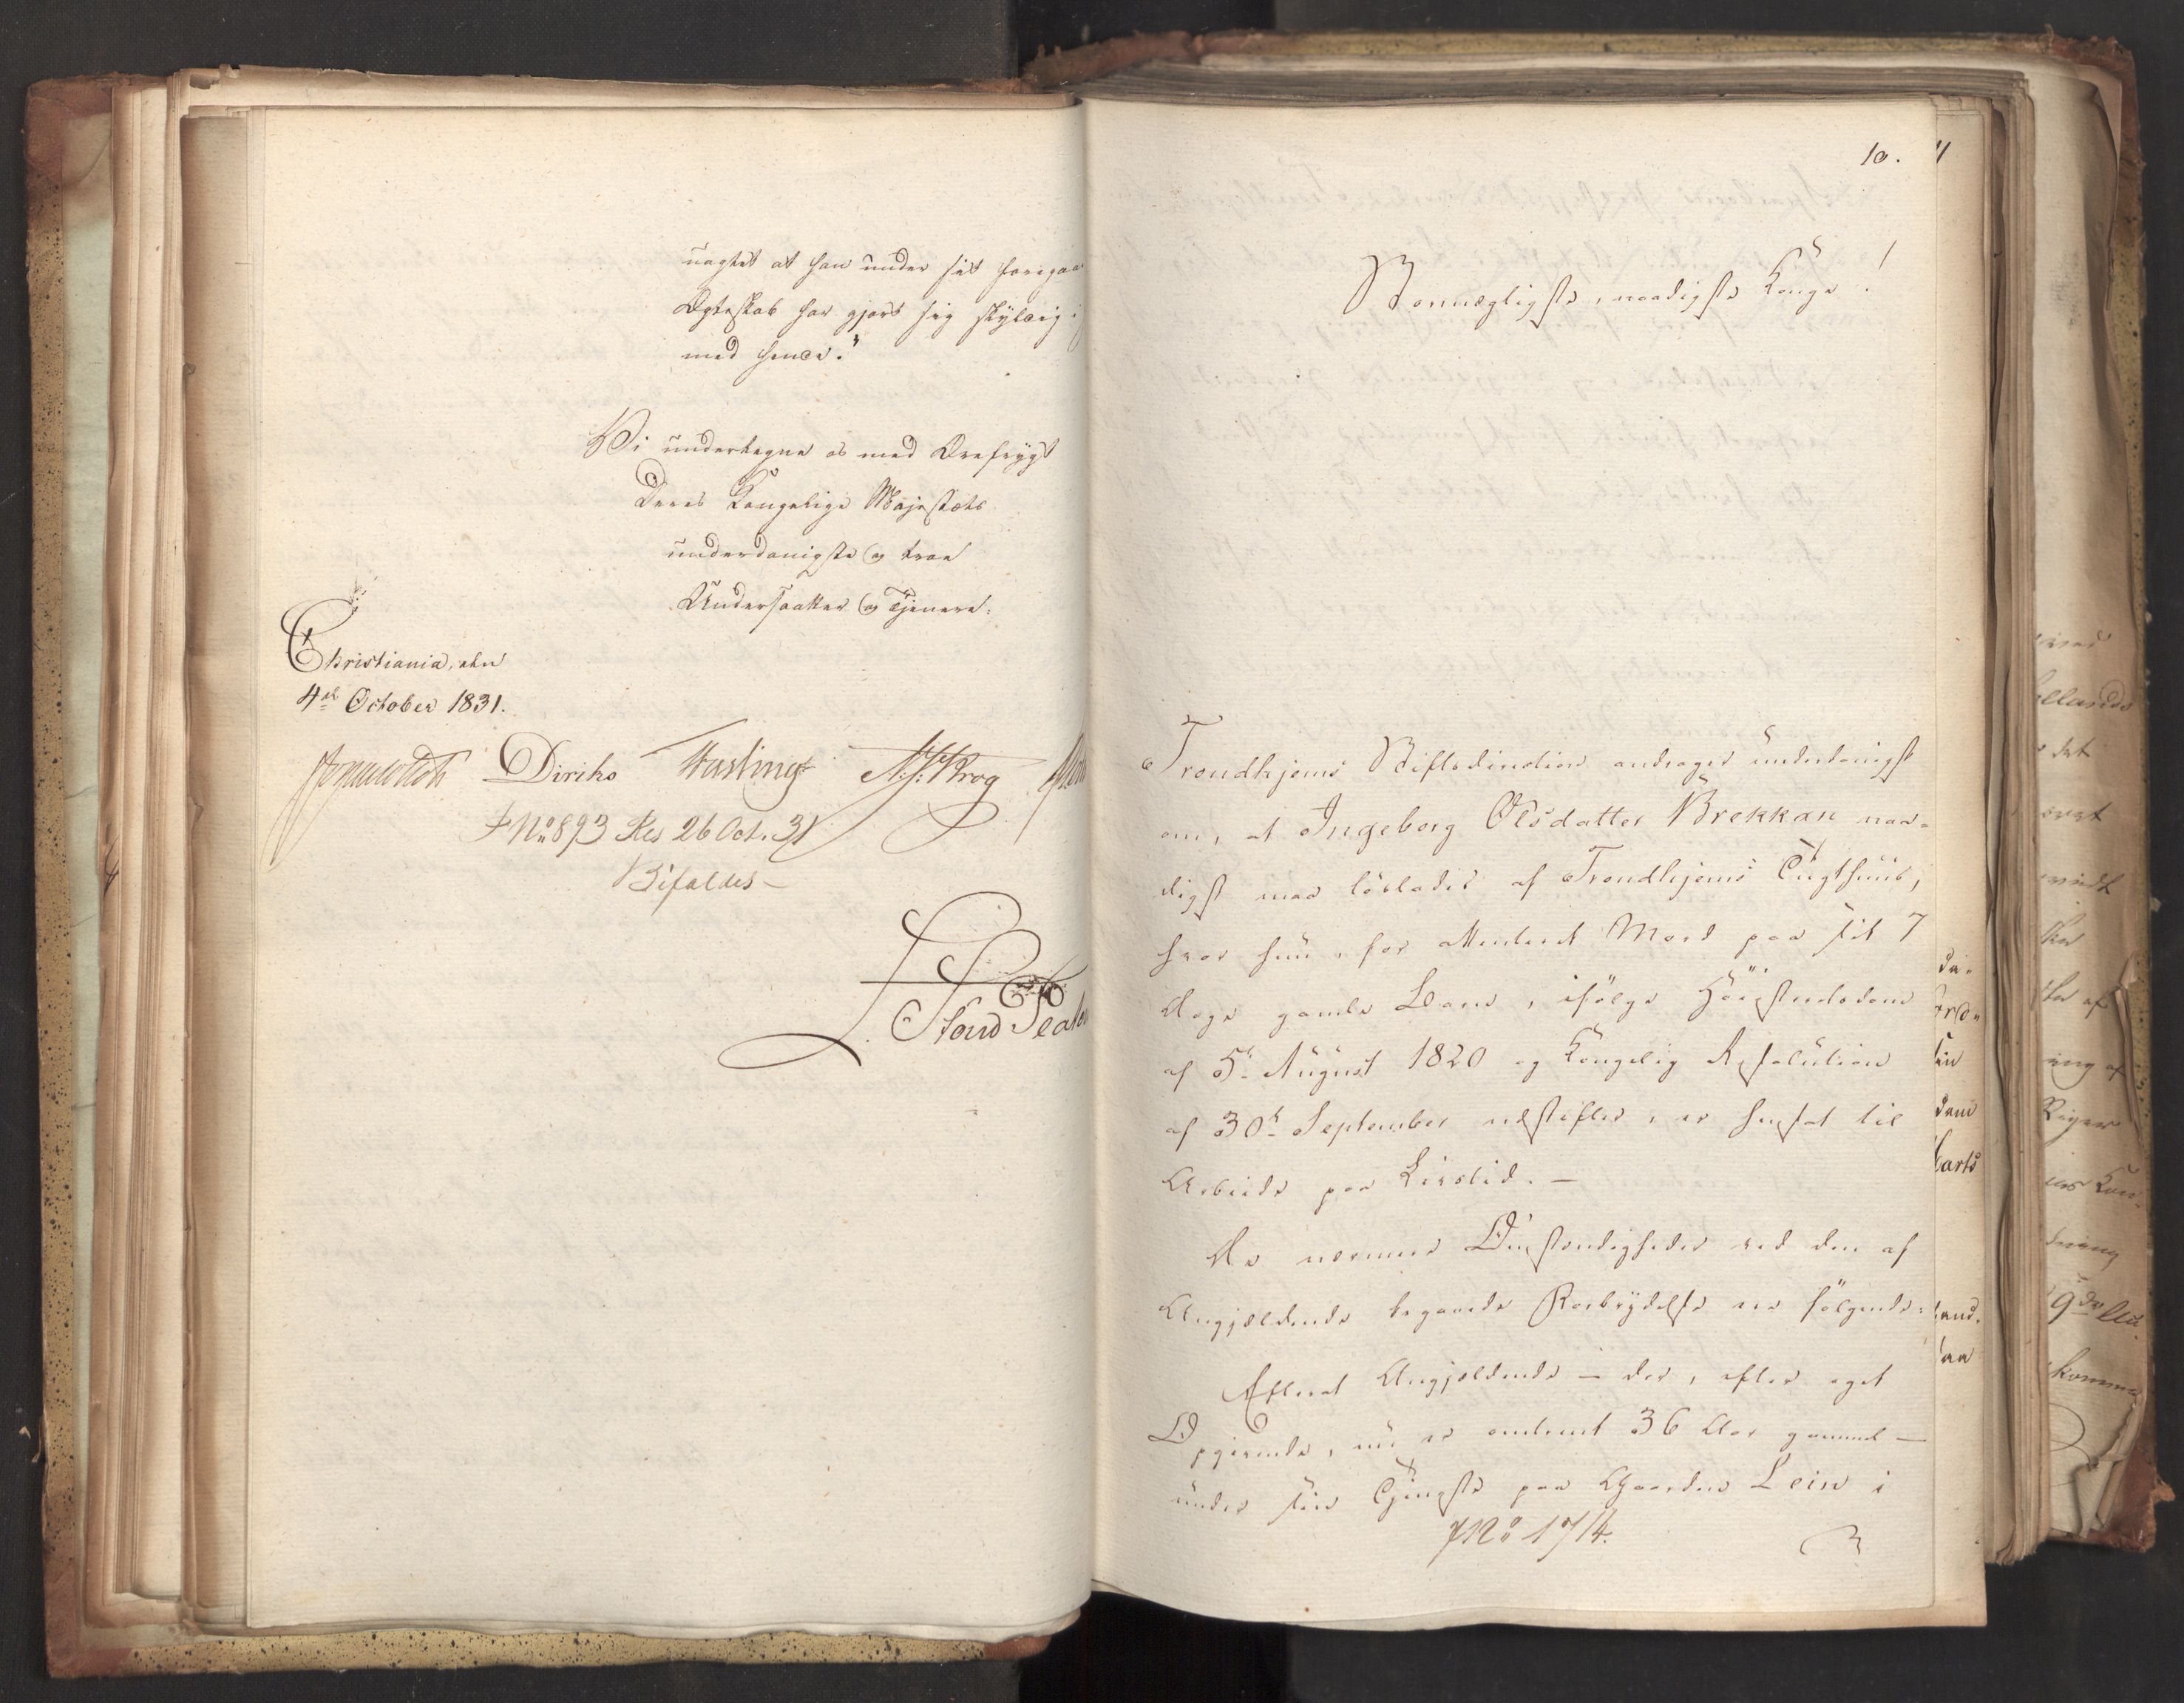 uagtet at han under sit foregaa
Ægteskab har gjort sig skyldig i
med hende."
Vi undertegne os med Ærefrygt
Deres Kongelige Majestæts
underdanigste og troe
Undersaatter og Tjenere.
Christiania, den
4de October 1831.
Diriks N. J. Krog
F No 893 Res 26 Oct. 31
Bifaldes
10.
Stormægtigste, naadigste Konge!
Trondhjems Stiftsdirection andrager underdanigst
om, at Ingeborg Olsdatter Brekkan naa-
digst maa löslades af Trondhjems Tugthuus,
hvor hun, for attenteret Mord paa sit 7
Uger gamle Barn, ifölge Höiesteretsdom
af 5te August 1820 og Kongelig Resolution
af 30te September næstefter, er hensat til
Arbeide paa Livstid. —
De nærmere Omstændigheder ved den af
Angjældende begaaede Forbrydelse ere fölgende:
Efterat Angjældende — der, efter eget
Opgivende, nu er omtrent 36 Aar gammel —
under sin Tjeneste paa Gaarden Lein i
JNo 1714.